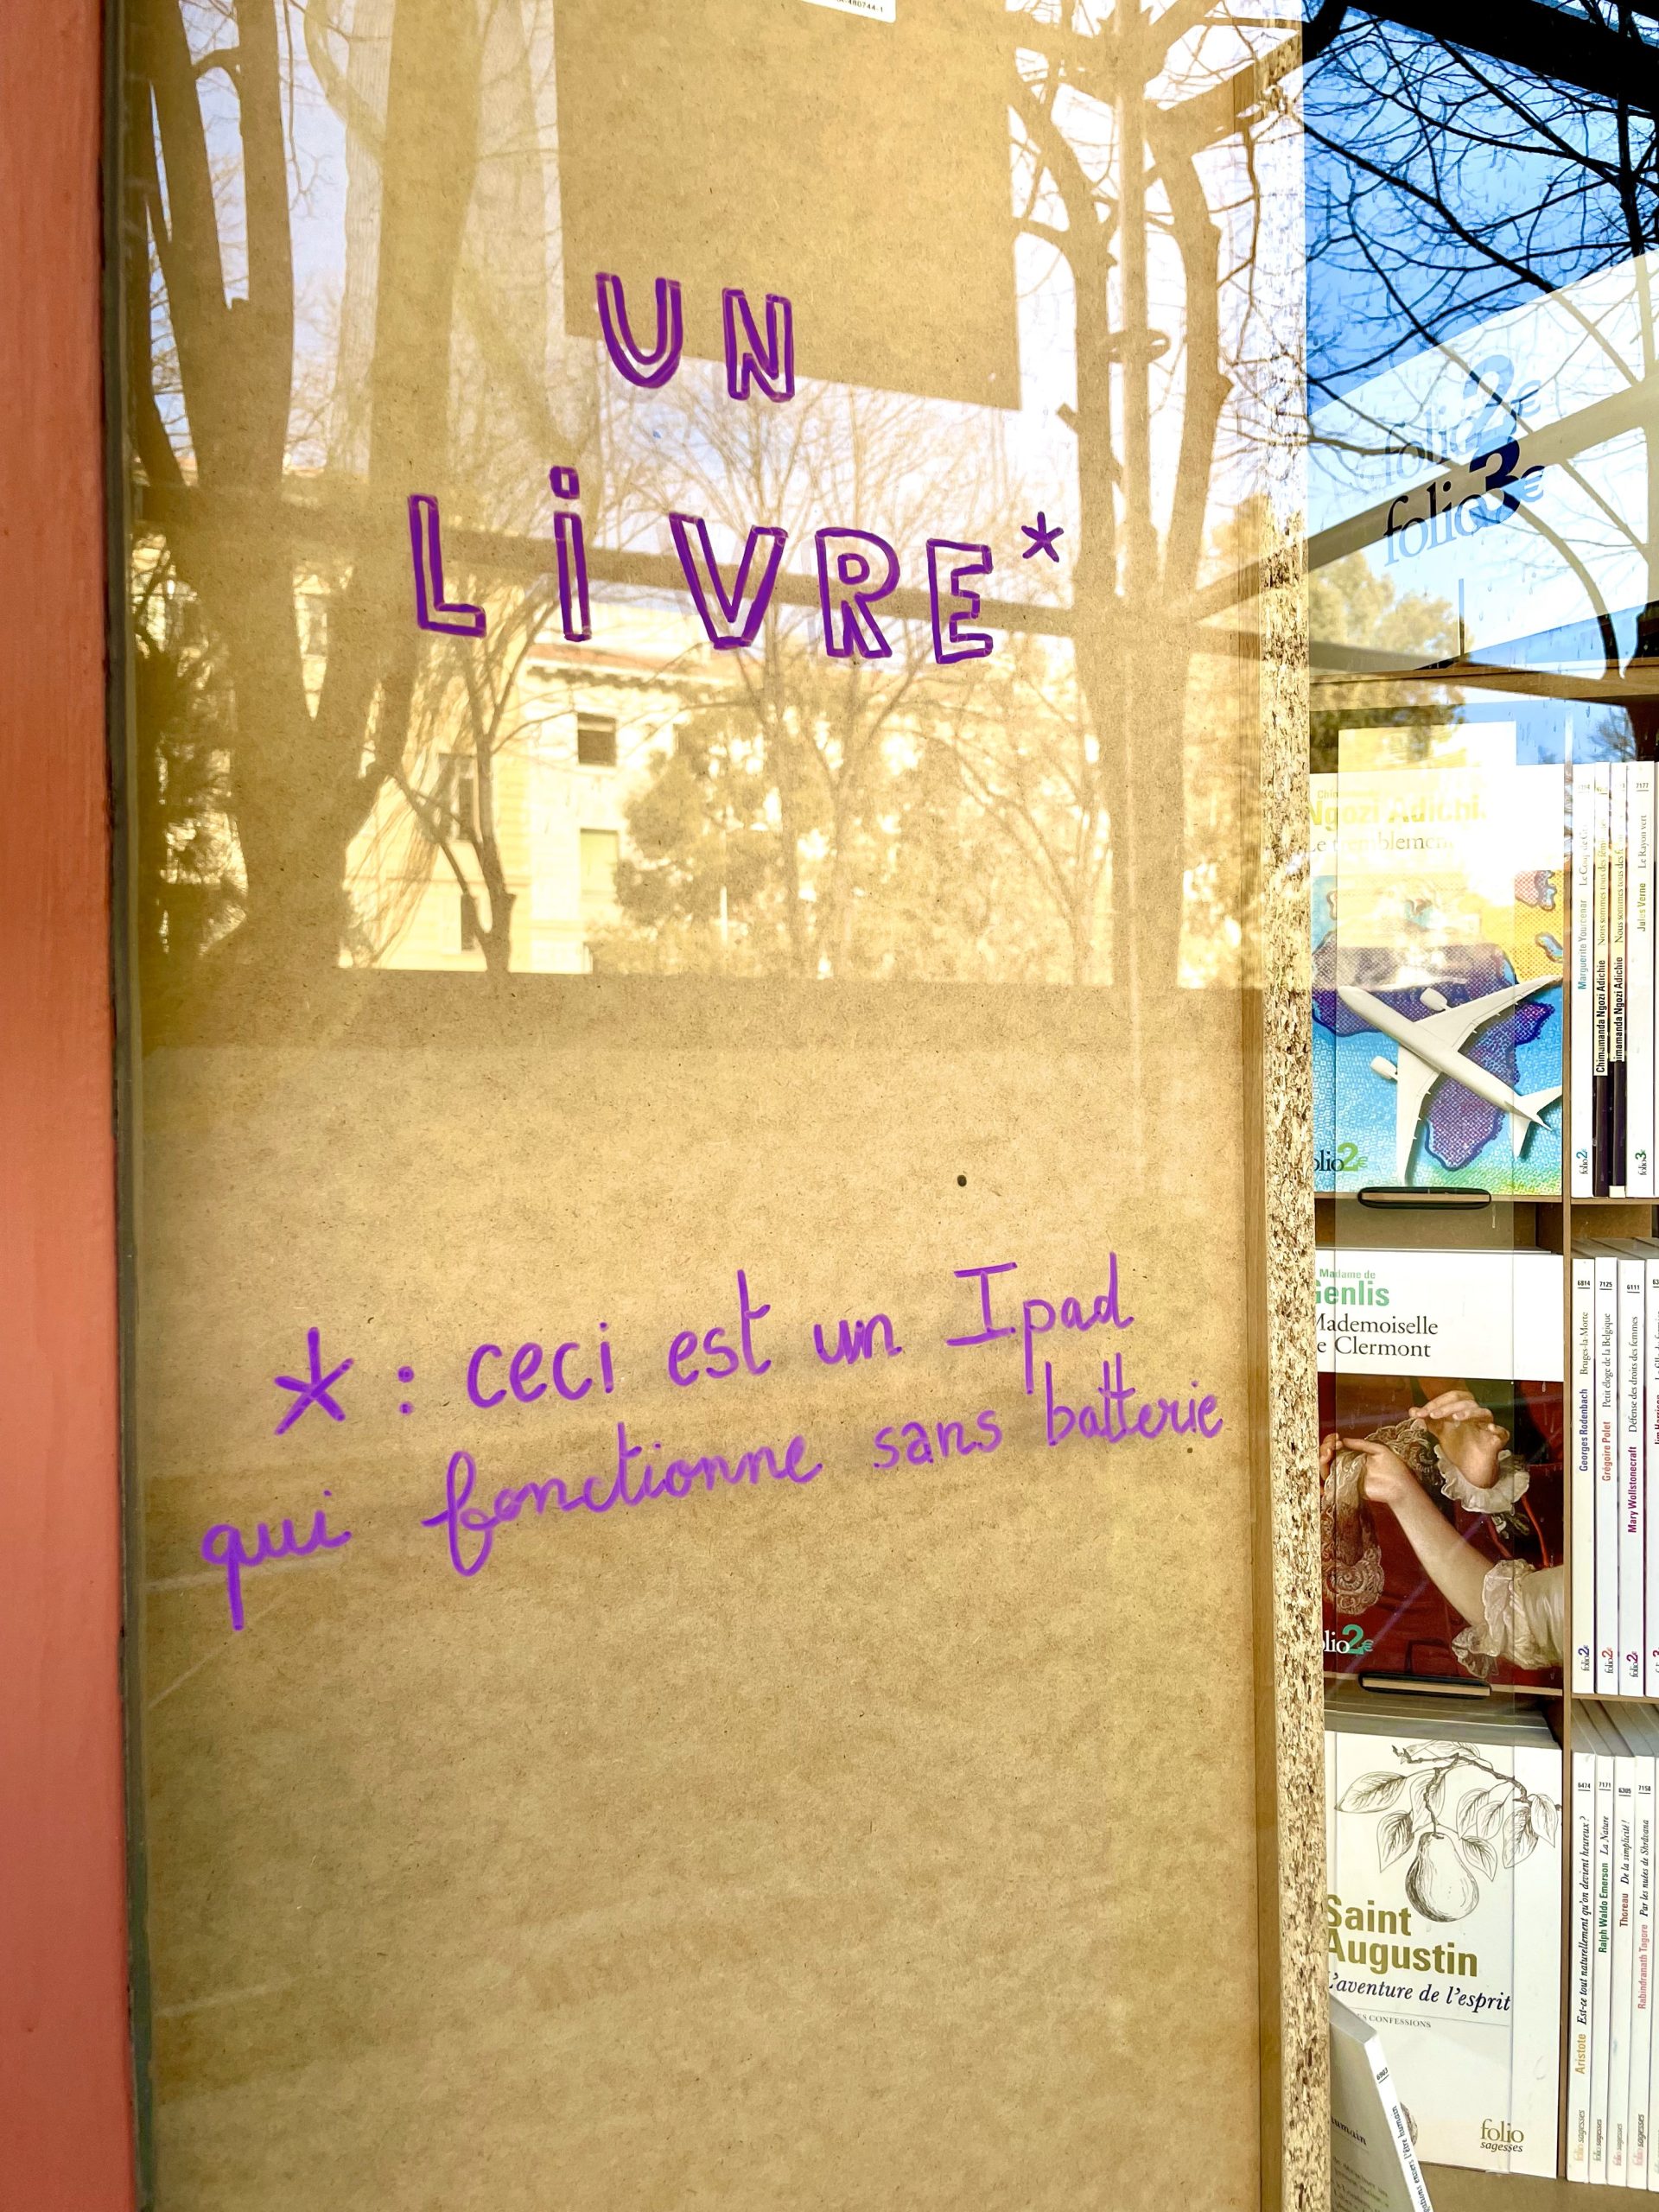 UN
LiVRE*
* : ceci est un Ipad
qui fonctionne sans batterie
folio 2€
folio 3€
Ngozi Adichi
Marguerite Yourcenar
Chimamanda Ngozi Adichie Nous sommes tous des
Chimamanda Ngozi Adichie Nous sommes tous des
Jules Verne Le Rayon vert
7177
folio2€
folio3€
Madame de
Genlis
Mademoiselle
de Clermont
folio2€
6814 Georges Rodenbach Bruges-la-Morte folio2€
7125 Grégoire Polet Petit éloge de la Belgique folio2€
6111 Mary Wollstonecraft Défense des droits des femmes folio2€
Saint
Augustin
L'aventure de l'esprit
CONFESSIONS
folio
sagesses
6474 Aristote Est-ce tout naturellement qu'on devient heureux ? folio sagesses
7171 Ralph Waldo Emerson La Nature folio sagesses
6305 Thoreau De la simplicité ! folio sagesses
7158 Rabindranath Tagore Par les nuées de Shrâvana folio sagesses